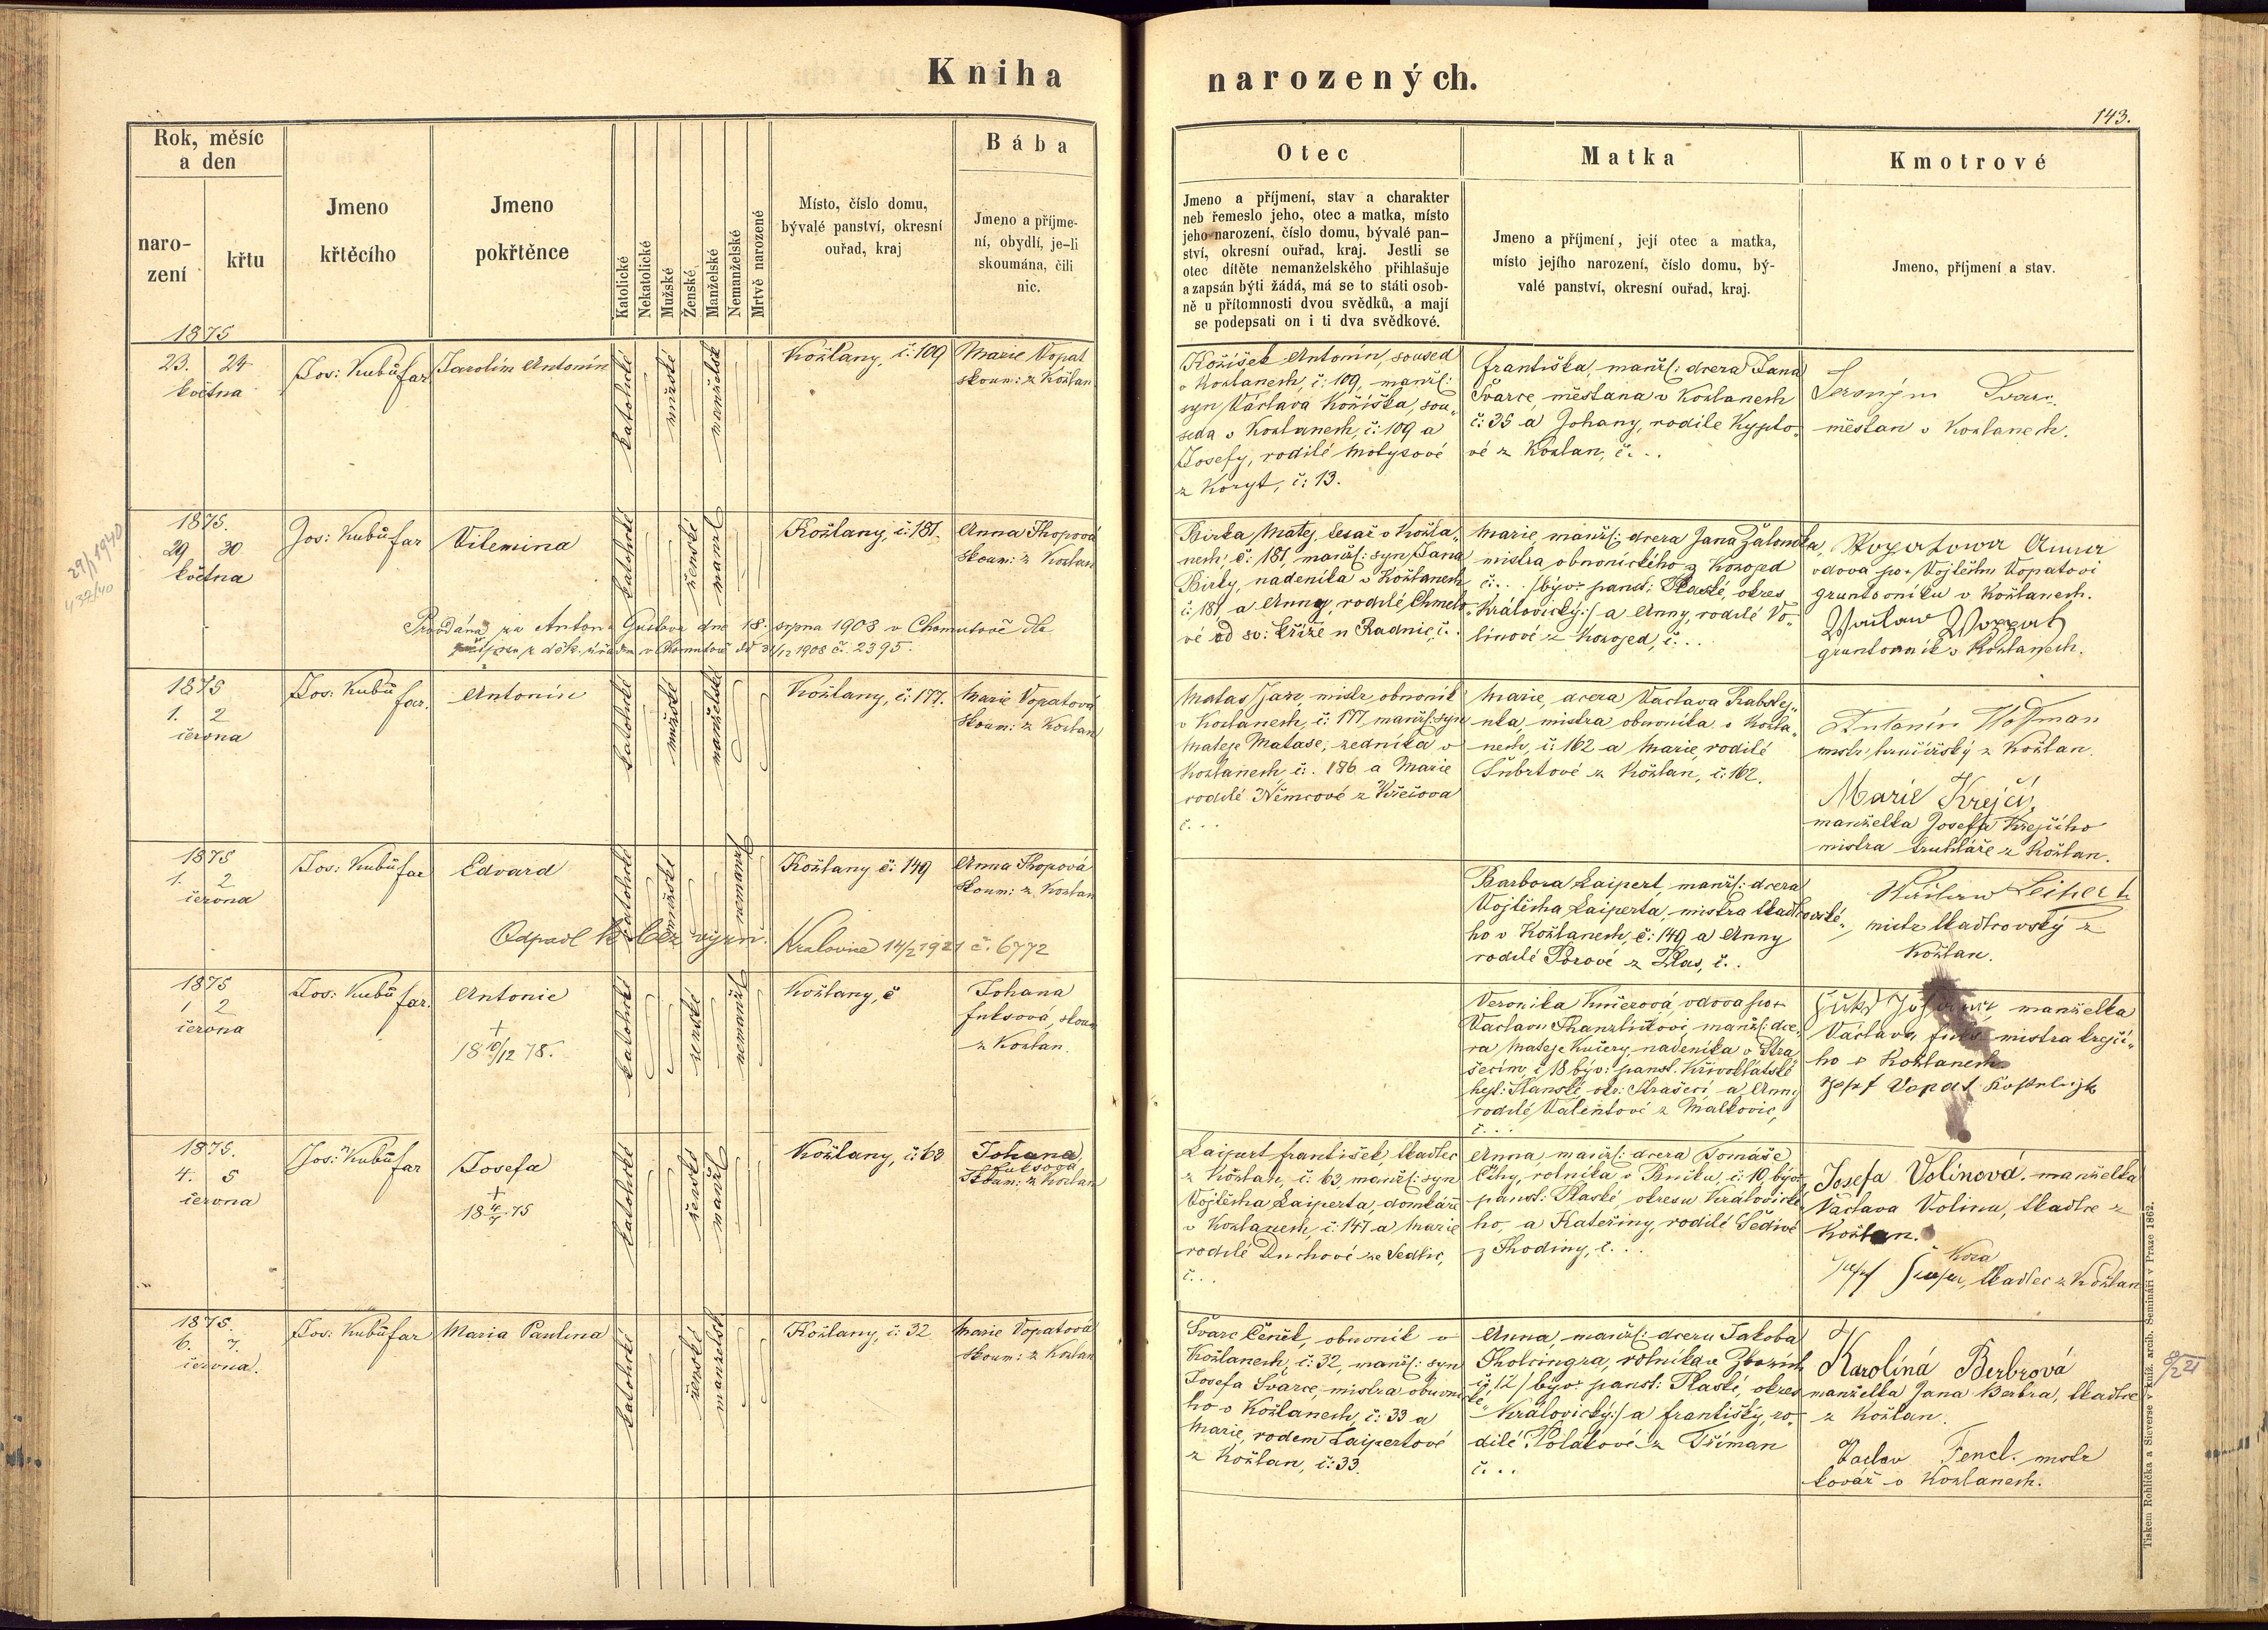 Kniha
narozených.
143.
Rok, měsíc
a den
naro-
zení
křtu
Jmeno
křtěcího
Jmeno
pokřtěnce
Katolické
Nekatolické
Mužské
Ženské
Manželské
Nemanželské
Mrtvě narozené
Místo, číslo domu,
bývalé panství, okresní
ouřad, kraj
Bába
Jmeno a příjme-
ní, obydlí, je-li
skoumána, čili
nic.
Otec
Jmeno a příjmení, stav a charakter
neb řemeslo jeho, otec a matka, místo
jeho narození, číslo domu, bývalé pan-
ství, okresní ouřad, kraj. Jestli se
otec dítěte nemanželského přihlašuje
a zapsán býti žádá, má se to státi osob-
ně u přítomnosti dvou svědků, a mají
se podepsati on i ti dva svědkové.
Matka
Jmeno a příjmení, její otec a matka,
místo jejího narození, číslo domu, bý-
valé panství, okresní ouřad, kraj.
Kmotrové
Jmeno, příjmení a stav.
1875
23. 24
května
Jos: Kubů
far
Jarolím Antonín
katolické
mužské
manželsk
Kožlany, č: 109
Marie Vopat
skoum: z Kožlan
Kožíšek Antonín, soused
v Kožlanech, č: 109, manžl:
syn Václava Kožíška, sou„
seda v Kožlanech, č: 109 a
Josefy, rodilé Motysové
z Koryt, č: 13.
Františka, manžl: dcera Jana
Švarce, měšťana v Kožlanech
č: 35 a Johany, rodilé Kypto„
vé z Kožlan, č. . .
Jeroným Švarc
měšťan v Kožlanech.
29/1 1940
437/40
1875.
29 30
května
Jos: Kubů far
Vilemina
katolické
ženské
manžl
Kožlany, č: 181.
Anna Škopová
skoum: z Kožlan
Birka Matěj, tesař v Kožla„
nech, č: 181, manžl: syn Jana
Birky, nadeníka v Kožlanech
č: 181 a Anny, rodilé Chmelo„
vé od sv: Kříže u Radnic, č.
Marie, manžl: dcera Jana Žaloudka,
mistra obuvnického z Kozojed
č: . . /býv: panst: Plaské, okres
Královický:/ a Anny, rodilé Vo„
línové z Kozojed, č. . .
Vopatowa Anna
vdova po + Vojtěchu Vopatovi
gruntovníku v Kožlanech.
Waclaw Woppat
gruntovník v Kožlanech.
Provdána za Anton. Gustava dne 18. srpna 1908 v Chomutově dle
děk. úřadu v Chomutově dd 31/12 1908 č. 2395.
1875
1. 2
června
Jos: Kubů
far.
Antonín
katolické
mužské
manželské
Kožlany, č: 177.
Marie Vopatová
skoum: z Kožlan
Matas Jan, mistr obuvník
v Kožlanech, č: 177, manžl: syn
Mateje Matase, zedníka v
Kožlanech, č: 186 a Marie
rodilé Němcové z Křečova
č. . .
Marie, dcera Václava Rabštej„
nka, mistra obuvníka v Kožla„
nech, č: 162 a Marie, rodilé
Šubrtové z Kožlan, č: 162.
Antonín Hofman
mistr hrnčířský z Kožlan
Marie Krejčí,
manželka Josefa Krejčího
mistra truhláře z Kožlan.
1875
1. 2
června
Jos: Kubů far
Edvard
katolické
mužské
nemanžl
Kožlany č: 149
Anna Škopová
skoum: z Kožlan
Odpadl k bez vyzn.
Kralovice 14/2 1921 č. 6772
Barbora Laipert, manžl: dcera
Vojtěcha Laiperta, mistra tkadlcovské„
ho v Kožlanech, č: 149 a Anny
rodilé Porové z Plas, č. .
Wáclaw Leipert
mistr tkadlcovský z
Kožlan.
1875
1. 2
června
Jos: Kubů far.
Antonie
+
18 10/12 78.
katolické
ženské
nemanžl
Kožlany, č
Johana
Fuksová, skoum
z Kožlan.
Veronika Kučerová, vdova po +
Václavu Thanzlíkovi, manžl: dce„
ra Mateje Kučery, nadeníka v Stra„
šecím, č 18 býv: panst. Křivoklátské
hejt: Slanské, okr: Strašecí a Anny
rodilé Valentové z Malkovic,
č. . .
manželka
Václava Fuks mistra krejčí„
ho v Kožlanech
Josef Vopat
1875.
4. 5
června
Jos: Kubů far
Josefa
+
18 4/7 75
katolické
ženské
manžl
Kožlany, č: 63
Johana
Fuksová
skoum: z Kožlan
Laipert František, tkadlec
z Kožlan, č: 63, manžl: syn
Vojtěcha Laiperta, domkáře
v Kožlanech, č: 147 a Marie
rodilé Duchové ze Sedlic,
č. . .
Anna, manžl: dcera Tomáše
Číhy, rolníka v Bučku, č: 10, býv:
panst: Plaské, okresu Královické„
ho, a Kateřiny, rodilé Šedivé
z Hodiny, č. . .
Josefa Volínová, manželka
Václava Volína, tkadlce z
Kožlan.
Kora
tkadlec z Kožlan
1875.
6. 7.
června.
Jos: Kubů far
Maria Paulina
katolické
ženské
manželsk
Kožlany, č: 32
Marie Vopatová
skoum: z Kožlan
Švarc Čeněk, obuvník v
Kožlanech, č: 32, manžl: syn
Josefa Švarce, mistra obuvnické„
ho v Kožlanech, č: 33 a
Marie, rodem Laipertové
z Kožlan, č: 33.
Anna, manžl: dcera Jakoba
Tholcingra, rolníka v Zbozích
č: 12 /býv: panst: Plaské, okres
Královický:/ a Františky, ro„
dilé Polákové z Tříman
č. . .
Karolína Berbrová
manželka Jana Berbra, tkadlce
z Kožlan.
Václav Fencl. mistr
kovář v Kožlanech.
8/2 21
Tiskem Rohlíčka a Sieverse v kníž. arcib. Semináři v Praze 1862.